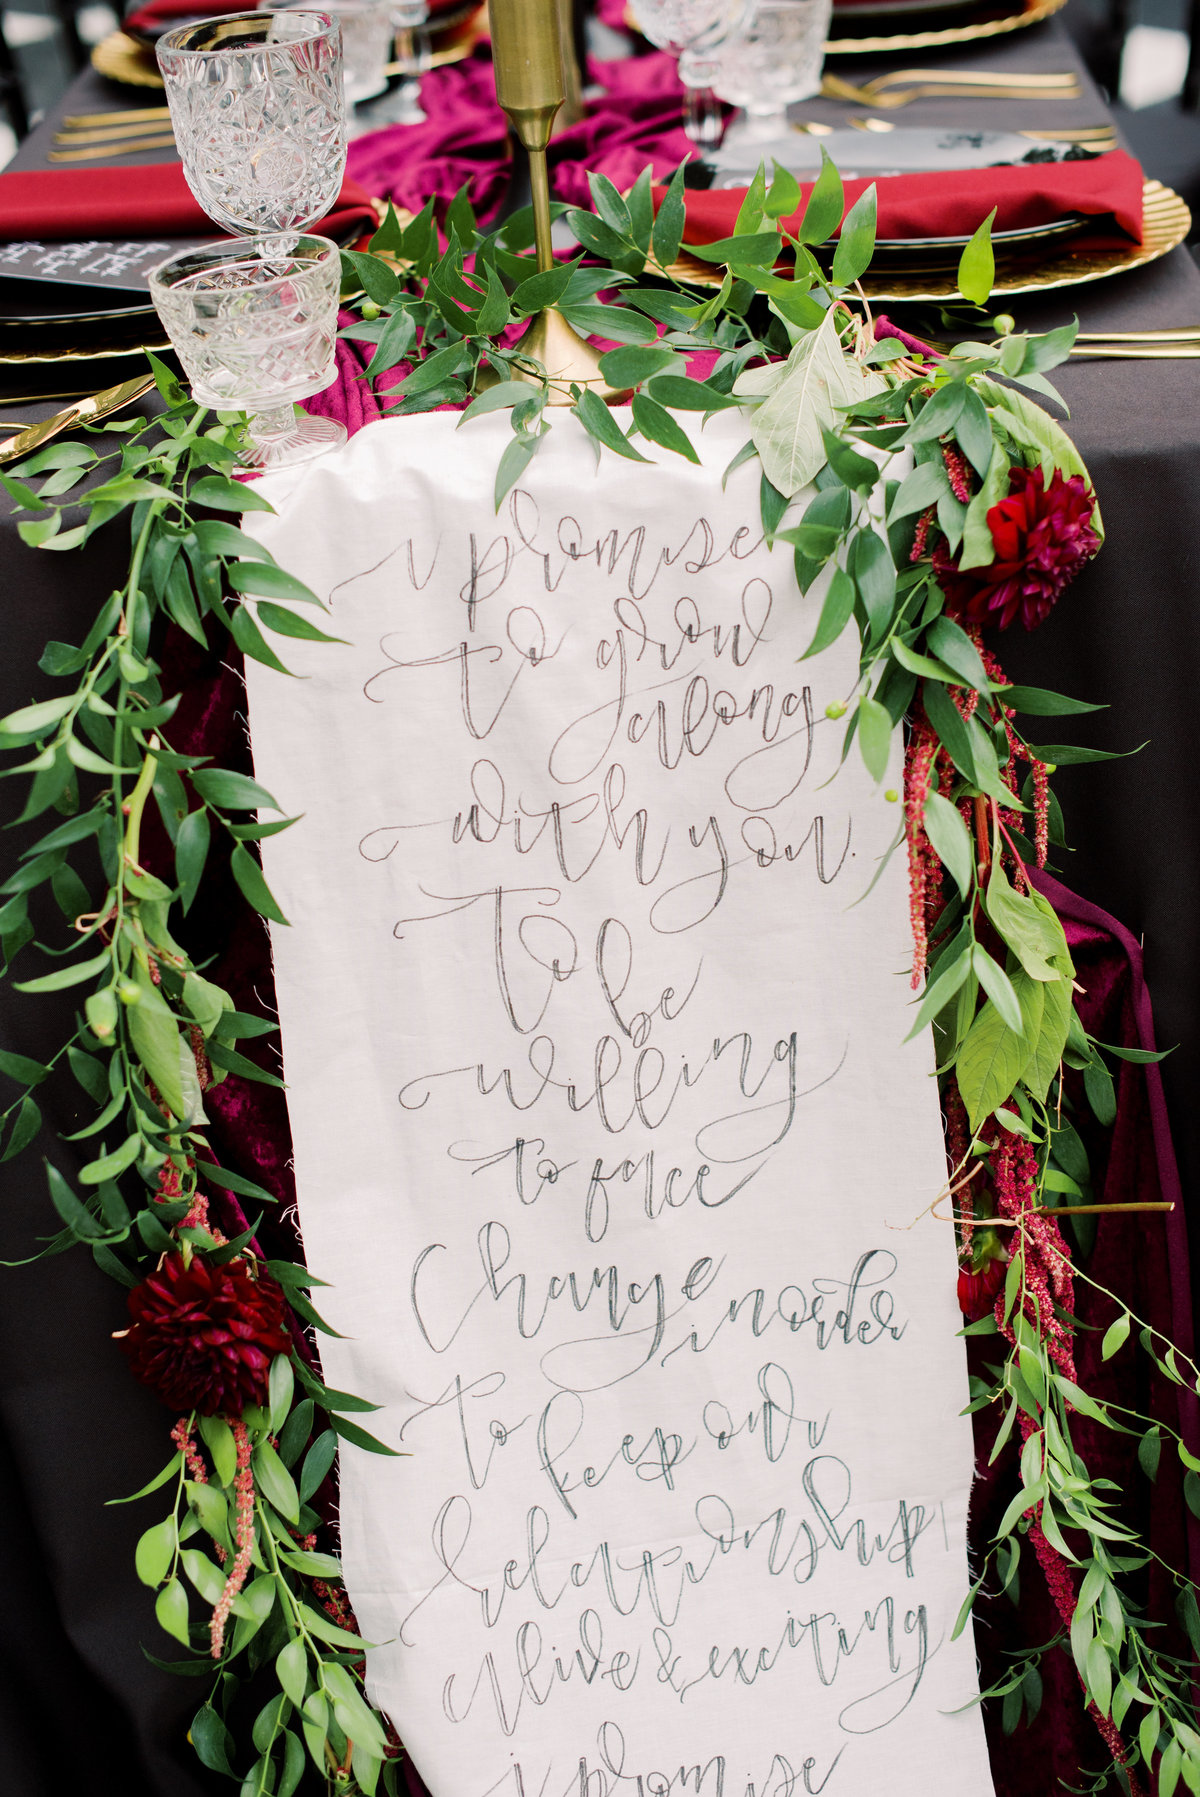 i promise
to grow
along
with you.
To be
willing
to face
change
in order
to keep our
relationship
alive & exciting
i promise